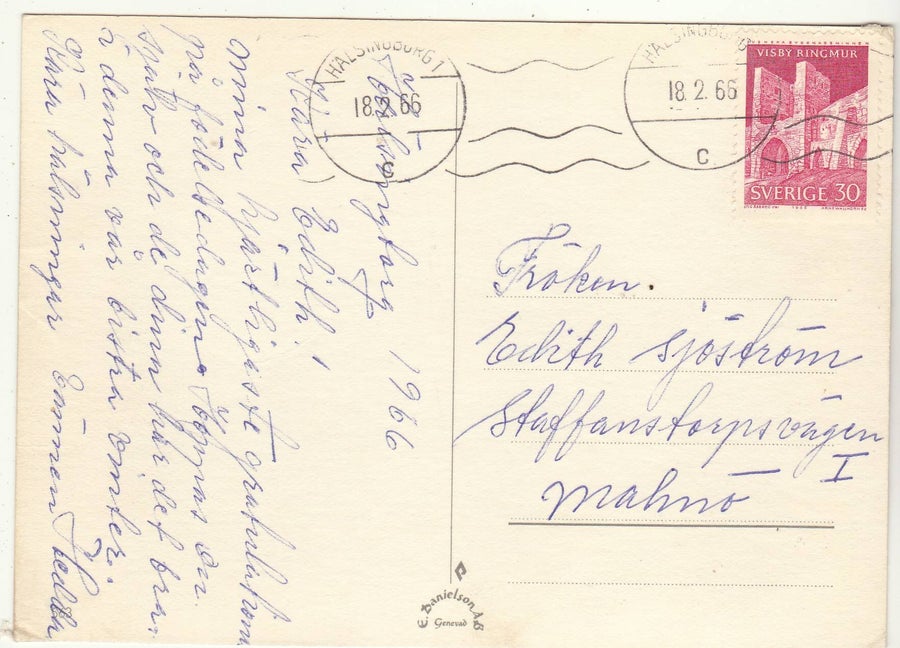 Hälsingborg 1966
Kära Edith!
Mina hjärtligaste gratulationer
på födelsedagen. Hoppas du
mår och de dina har det bra.
i denna vår bistra vinter.
Kära hälsningar
HÄLSINGBORG 1
18.2.66
C
HÄLSINGBORG
18.2.66
C
VISBY RINGMUR
SVERIGE 30
Fröken.
Edith Sjöström
Staffanstorpsvägen
I
Malmö
E. Danielson A-B
Genevad